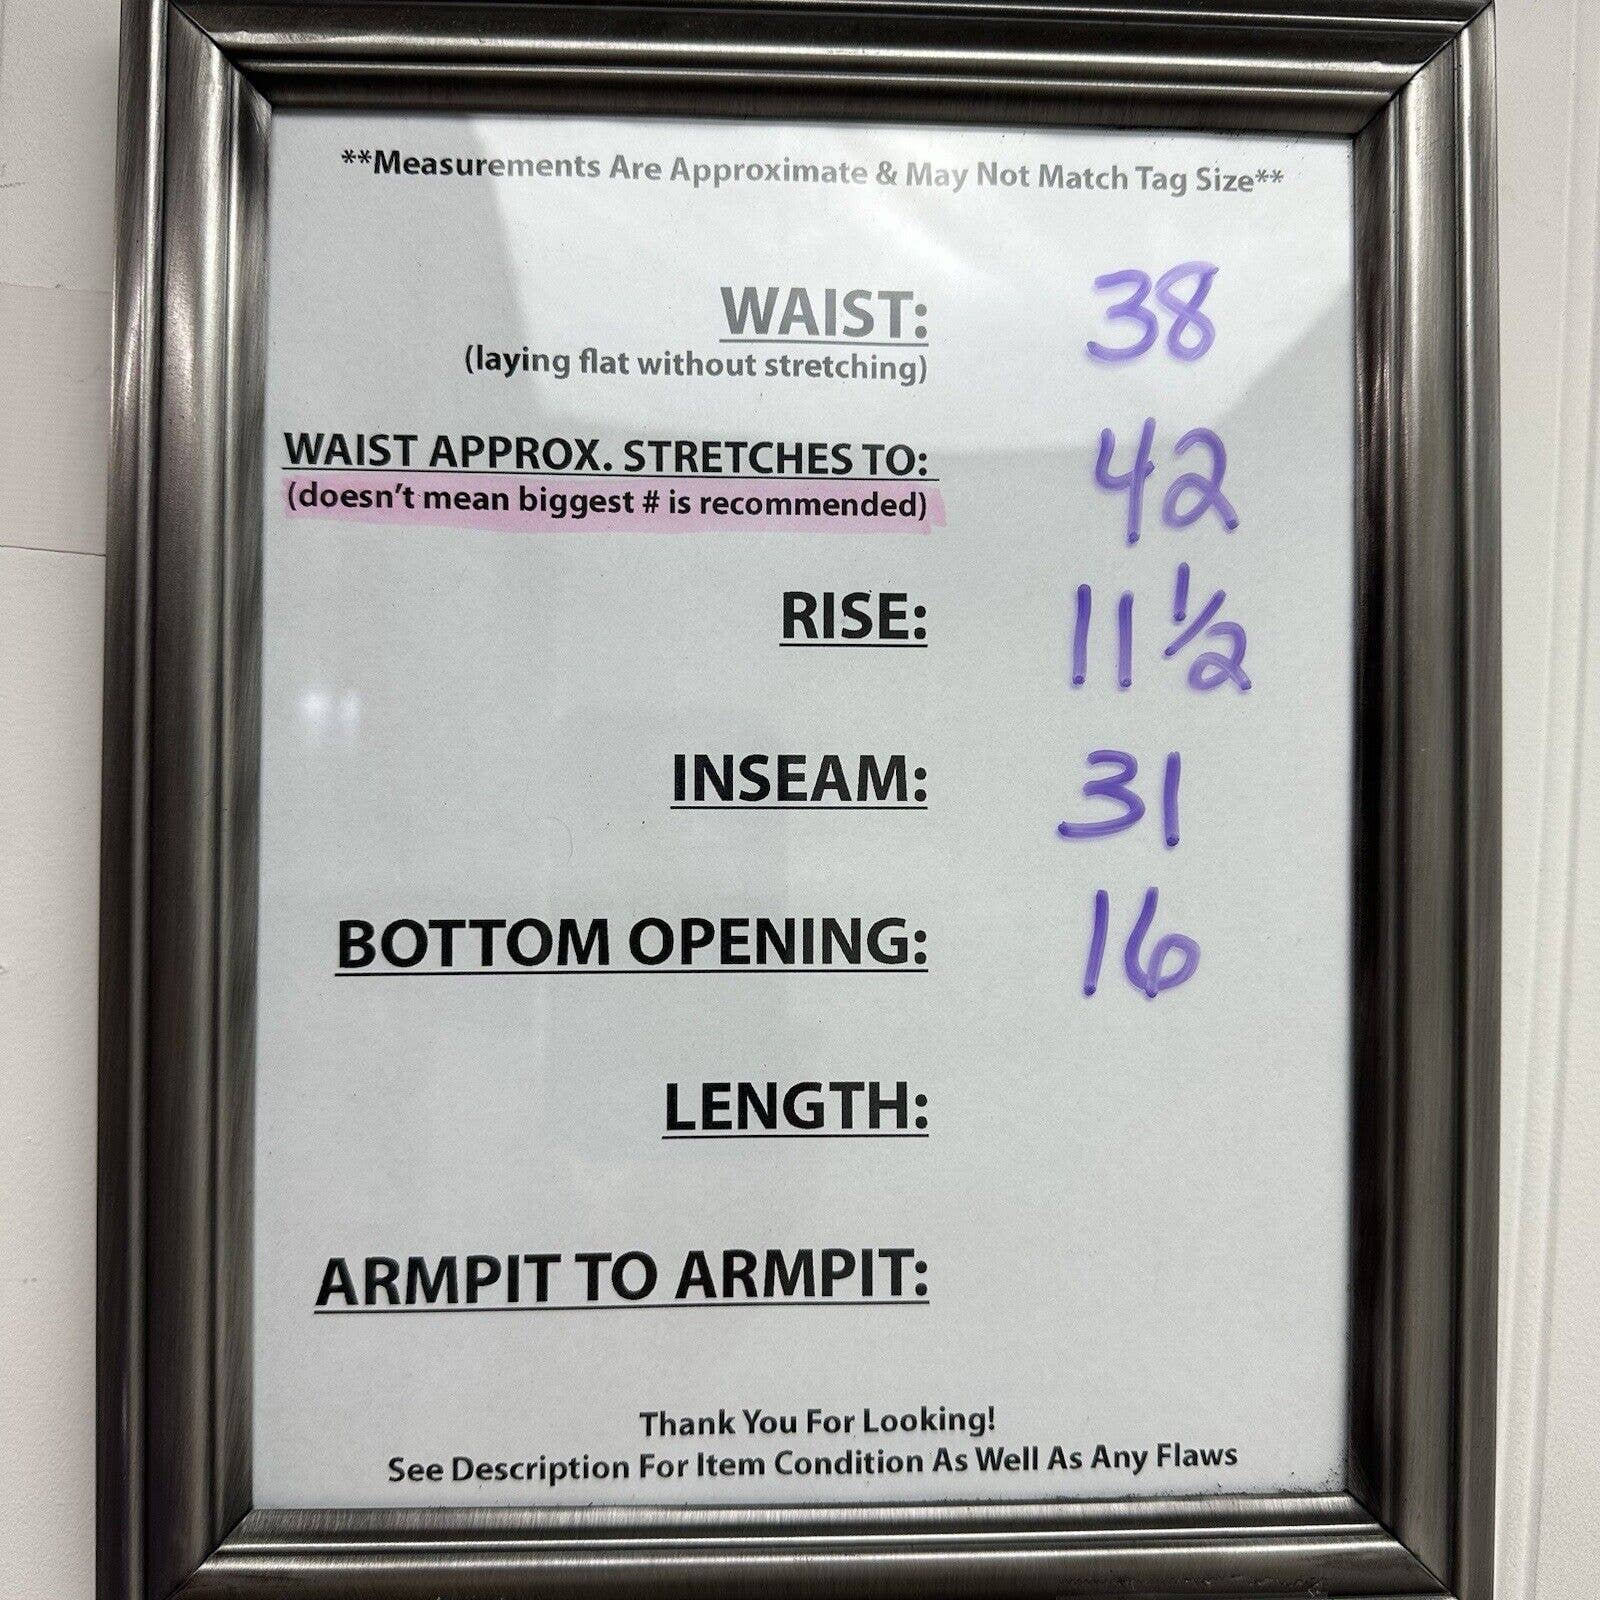 **Measurements Are Approximate & May Not Match Tag Size**
WAIST: 38
(laying flat without stretching)
WAIST APPROX. STRETCHES TO: 42
(doesn't mean biggest # is recommended)
RISE: 11 1/2
INSEAM: 31
BOTTOM OPENING: 16
LENGTH:
ARMPIT TO ARMPIT:
Thank You For Looking!
See Description For Item Condition As Well As Any Flaws